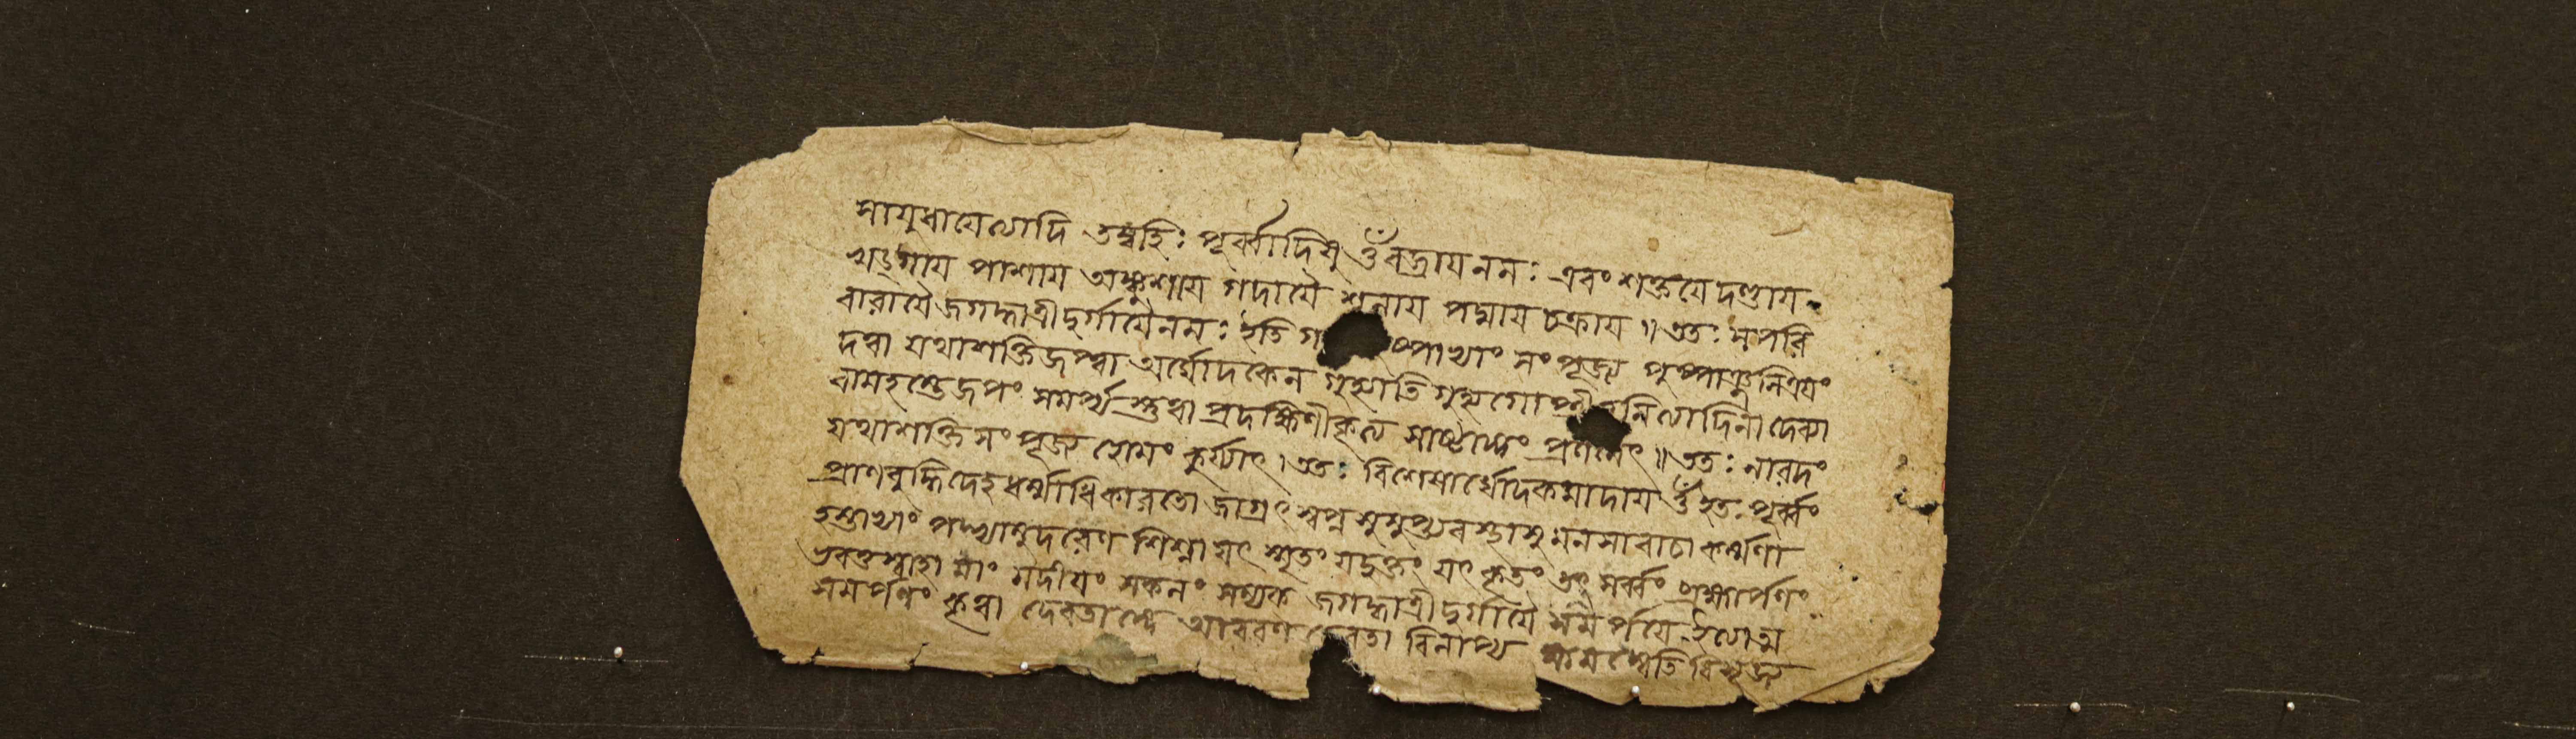 সাযুধাযেত্যাদি তদ্বহিঃ পূর্ব্বাদিষু ওঁ বজ্রায নমঃ এবং শক্তযে দণ্ডায
খড্গায পাশায অঙ্কুশায গদাযৈ শূলায পদ্মায চক্রায ॥ ততঃ সপরি
বারাযৈ জগদ্ধাত্রীদুর্গাযৈ নমঃ ইতি গ ষ্পাভ্যাং সংপূজ্য পুষ্পাঞ্জলিত্রযং
দত্বা যথাশক্তি জপ্ত্বা অর্ঘ্যোদকেন গুহ্যাতিগুহ্যগোপ্ত্রী মিত্যাদিনা দেব্যা
বামহস্তে জপং সমর্প্য স্তুত্বা প্রদক্ষিণীকৃত্য সাষ্টাঙ্গং প্রণমেৎ ॥ ততঃ নারদং
যথাশক্তি সংপূজ্য হোমং কুর্য্যাৎ । ততঃ বিশেষার্ঘ্যোদকমাদায ওঁ ইতঃ পূর্ব্বং
প্রাণবুদ্ধিদেহধর্ম্মাধিকারতো জাগ্রৎস্বপ্নসুষুপ্ত্যবস্থাসু মনসা বাচা কর্ম্মণা
হস্তাভ্যাং পদ্ভ্যামুদরেণ শিশ্না যৎ স্মৃতং যদুক্তং যৎ কৃতং তৎ সর্ব্বং ব্রহ্মার্পণং
ভবতু স্বাহা মাং মদীযং সকলং সম্যক জগদ্ধাত্রীদুর্গাযৈ সমর্পযে ইত্যাত্ম
সমর্পণং কৃত্বা দেবতাঙ্গে আবরণ বতা বিলাপ্য ক্ষমস্বেতি বিসৃজ্য